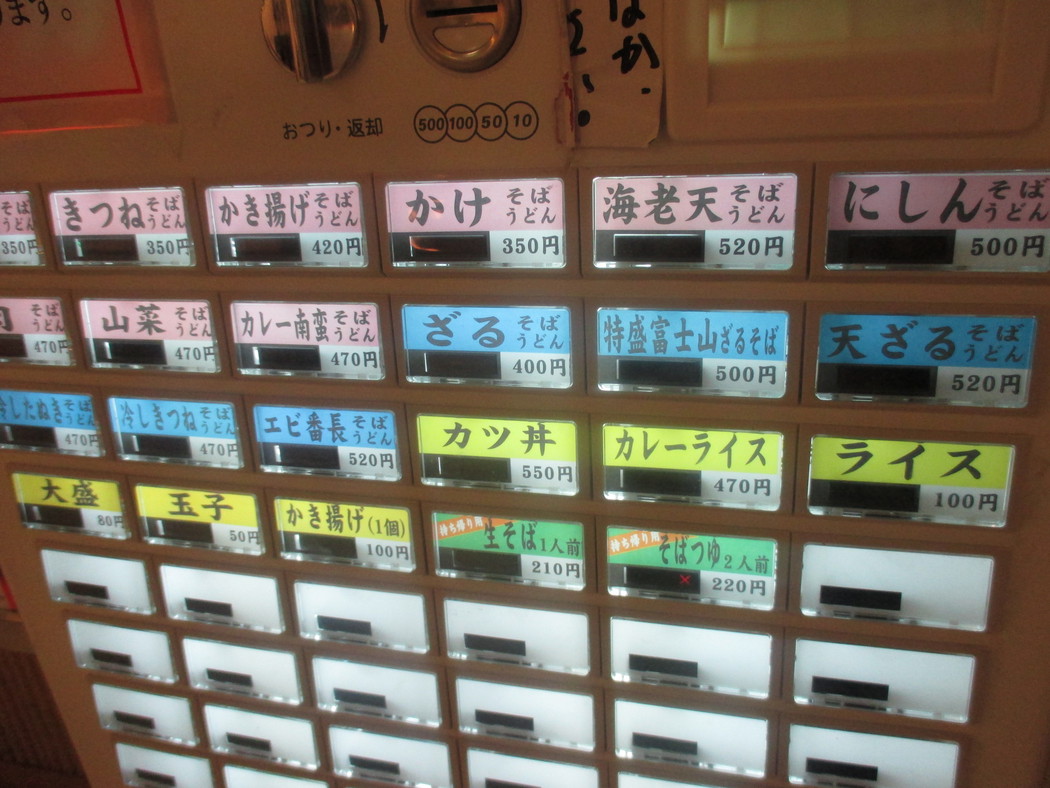 ます。
なか
おつり・返却
500 100 50 10
そば
うどん
350円
きつね そば
うどん
350円
かき揚げ そば
うどん
420円
かけ そば
うどん
350円
海老天 そば
うどん
520円
にしん そば
うどん
500円
そば
うどん
470円
山菜 そば
うどん
470円
カレー南蛮 そば
うどん
470円
ざる そば
うどん
400円
特盛富士山ざるそば
500円
天ざる そば
うどん
520円
冷したぬき そば
うどん
470円
冷しきつね そば
うどん
470円
エビ番長 そば
うどん
520円
カツ丼
550円
カレーライス
470円
ライス
100円
大盛
80円
玉子
50円
かき揚げ(1個)
100円
持ち帰り用
生そば1人前
210円
持ち帰り用
そばつゆ2人前
×
220円